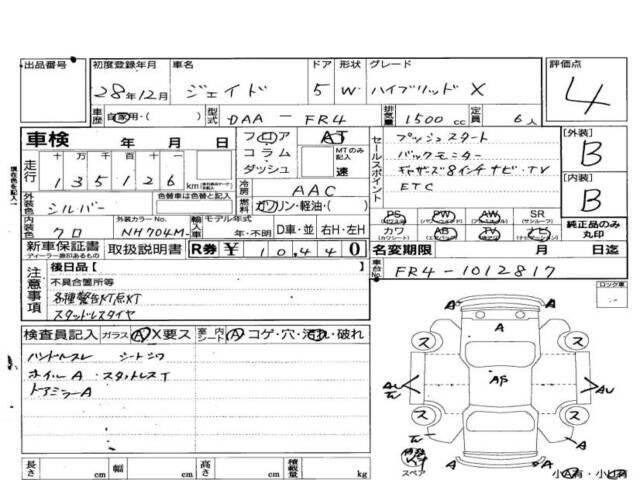 出品番号 初度登録年月 車名 ドア 形状 グレード 評価点
28年12月 ジェイド 5 W ハイブリッド X 4
車歴 自家用・( ) 型式 DAA - FR4 排気量 1500 cc 定員 6 人
車検 年 月 日
フロア AT
コラム MTのみ記入
ダッシュ 速
走行 十 万 千 百 十 一
135126 km
冷房 AAC
燃料 ガソリン・軽油・( )
外装色 シルバー 色替車は色替と記入
内装色 クロ 外装カラーNo. NH704M- 輸入車 モデル年式 年・不明 D車・並 右H・左H
セールスポイント
プッシュスタート
バックモニター
ギャザズ8インチナビ・TV
ETC
PS PW AW SR (サンルーフ)
カワ (カワシート) AB TV ナビ
[外装] B
[内装] B
純正品のみ丸印
新車保証書 ディーラー捺印あるもの 取扱説明書 R券 ¥ 10,440
名変期限 月 日迄
車台No. FR4-1012817
注意事項
後日品[ ]
不具合箇所等
各種警告灯点灯
スタッドレスタイヤ
検査員記入 ガラス A X要ス 室内シート A コゲ・穴・汚れ・破れ
ハンドルスレ シートシワ
ホイールA スタットレスT
ドアミラーA
ロック車
ス ス ス ス
A A A A A
AU AU
スペア
小A有・小U有
長さ cm 幅 cm 高さ cm 積載量 kg